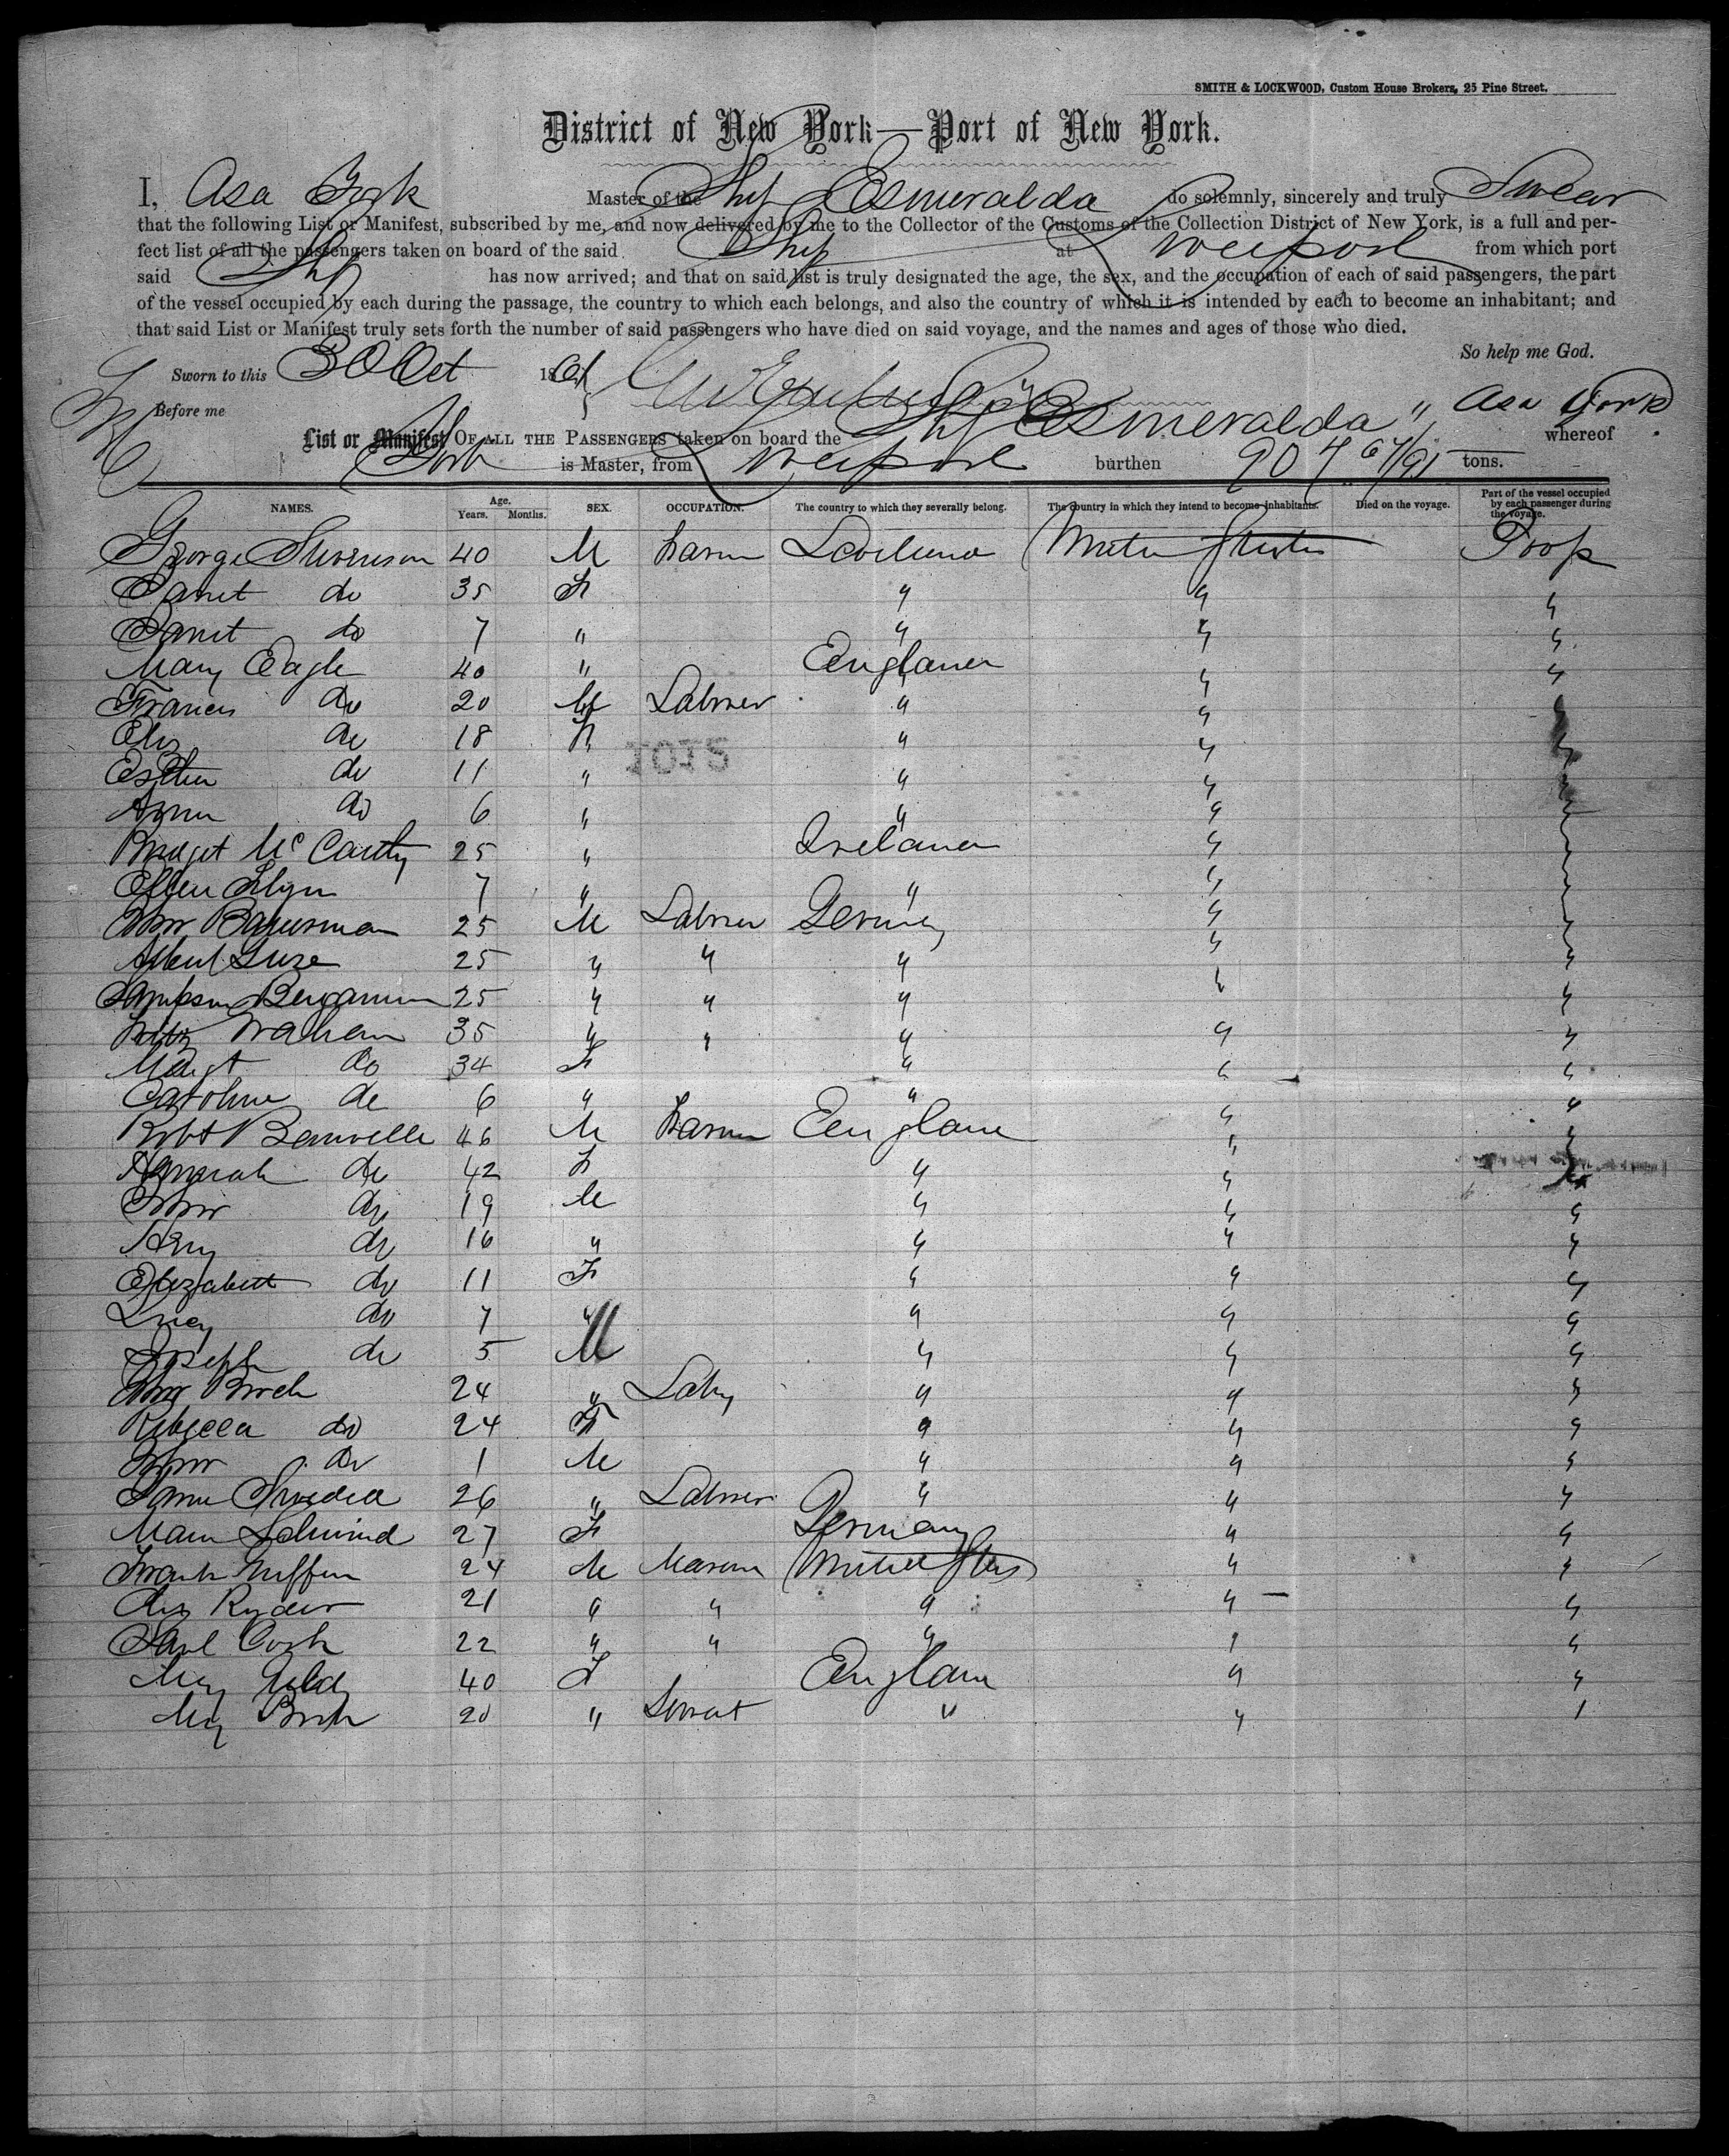 SMITH & LOCKWOOD, Custom House Brokers, 25 Pine Street.
District of New York—Port of New York.
I, Asa York Master of the Ship Esmeralda do solemnly, sincerely and truly Swear
that the following List or Manifest, subscribed by me, and now delivered by me to the Collector of the Customs of the Collection District of New York, is a full and per-
fect list of all the passengers taken on board of the said Ship at Liverpool from which port
said Ship has now arrived; and that on said list is truly designated the age, the sex, and the occupation of each of said passengers, the part
of the vessel occupied by each during the passage, the country to which each belongs, and also the country of which it is intended by each to become an inhabitant; and
that said List or Manifest truly sets forth the number of said passengers who have died on said voyage, and the names and ages of those who died.
So help me God.
Sworn to this 30 Oct 1861
Before me Asa York
List or Manifest OF ALL THE PASSENGERS taken on board the Ship "Esmeralda" whereof
York is Master, from Liverpool burthen 907 67/95 tons.
NAMES. Age. Years. Months. SEX. OCCUPATION. The country to which they severally belong. The country in which they intend to become inhabitants. Died on the voyage. Part of the vessel occupied by each passenger during the voyage.
George Stevenson 40 M Farm Scotland United States Poop
Janet do 35 F " " "
Janet do 7 " " " "
Mary Eagle 40 " England " "
Francis do 20 M Labourer " " "
Eliz do 18 F " " "
1012
Esther do 11 " " " "
Ann do 6 " " " "
Bridget McCarthy 25 " Ireland " "
Ellen Flynn 7 " " " "
Wm Bauerman 25 M Labourer Germany " "
Albert 25 " " " " "
Benjamin 25 " " " " "
Fritz 35 " " " " "
Margt do 34 F " " "
Caroline do 6 " " " "
Robt 46 M Farm England " "
Hannah do 42 F " " "
Wm do 19 M " " "
Hry do 16 " " " "
Elizabeth do 11 F " " "
Lucy do 7 " " " "
Joseph do 5 M " " "
Wm Birch 24 " Labr " " "
Rebecca do 24 F " " "
Wm do 1 M " " "
26 " Labourer " " "
27 F Germany " "
Frank Griffin 24 M Marine United States " "
Chs Ryder 21 " " " " "
22 " " " " "
Mary 40 F England " "
Mary 20 " Servant " " "